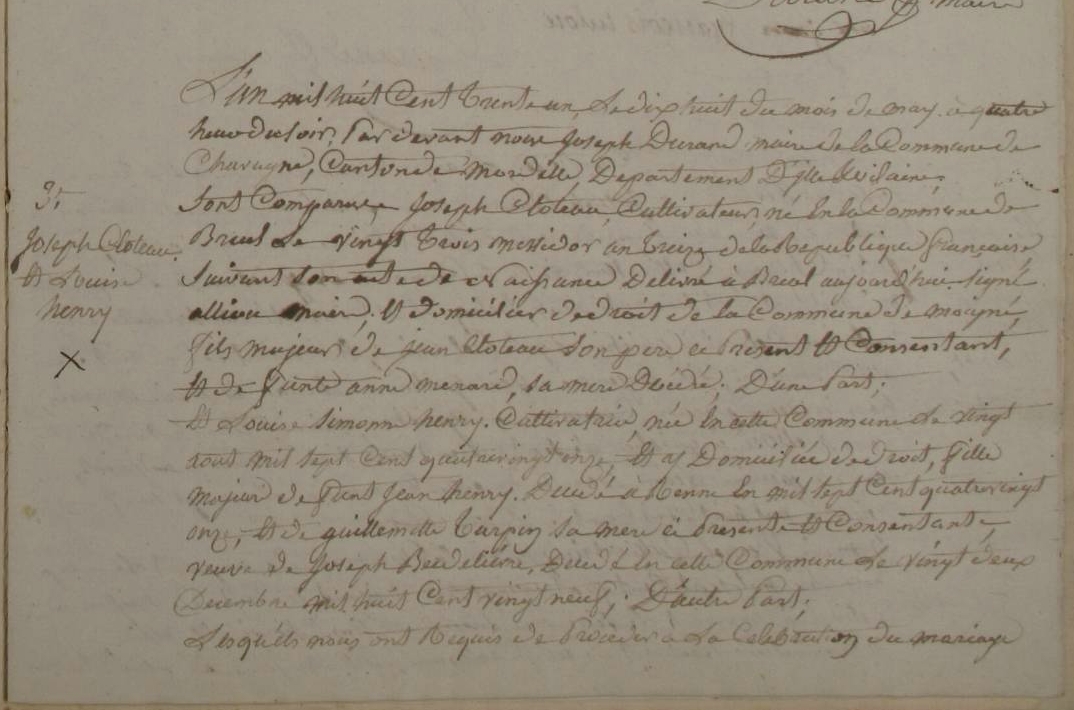 maire
L'an mil huit Cent trente un, Le dix huit du mois de may a quatre
heure du soir, Par devant nous Joseph Durand maire de la Commune de
Chavagne, Canton de Mordelle, Departement D'ylle & vilaine,
Sont Comparue Joseph Cloteau, Cultivateur, né En la Commune de
Breal Le vingt trois messidor an treize de la Republique française,
Suivant Son acte de Naissance Délivré à Breal aujourd'hui signé
allieu maire, Et domicilier de droit de la Commune de moigné,
fils majeur de jean Cloteau Son pere a Present Et Consentant,
Et de funte anne menard, Sa mere Décédé, D'une Part,
Et Louise Simonne henry, Cultivatrice, née En cette Commune Le vingt
aout mil sept Cent quatrevingt onze, Et y Domiciliée de droit, fille
majeur de funt Jean henry. Décédé à Renne En mil sept Cent quatrevingt
onze, Et de guillemette tarpin Sa mere à Presente Et Consentante,
veuve de Joseph Decédé En cette Commune Le vingt deux
Decembre mil huit Cent vingt neuf, D'autre Part,
Lesquels nous ont Requis de Proceder à La Celebration du mariage
Joseph Cloteau
Et Louise
henry
X